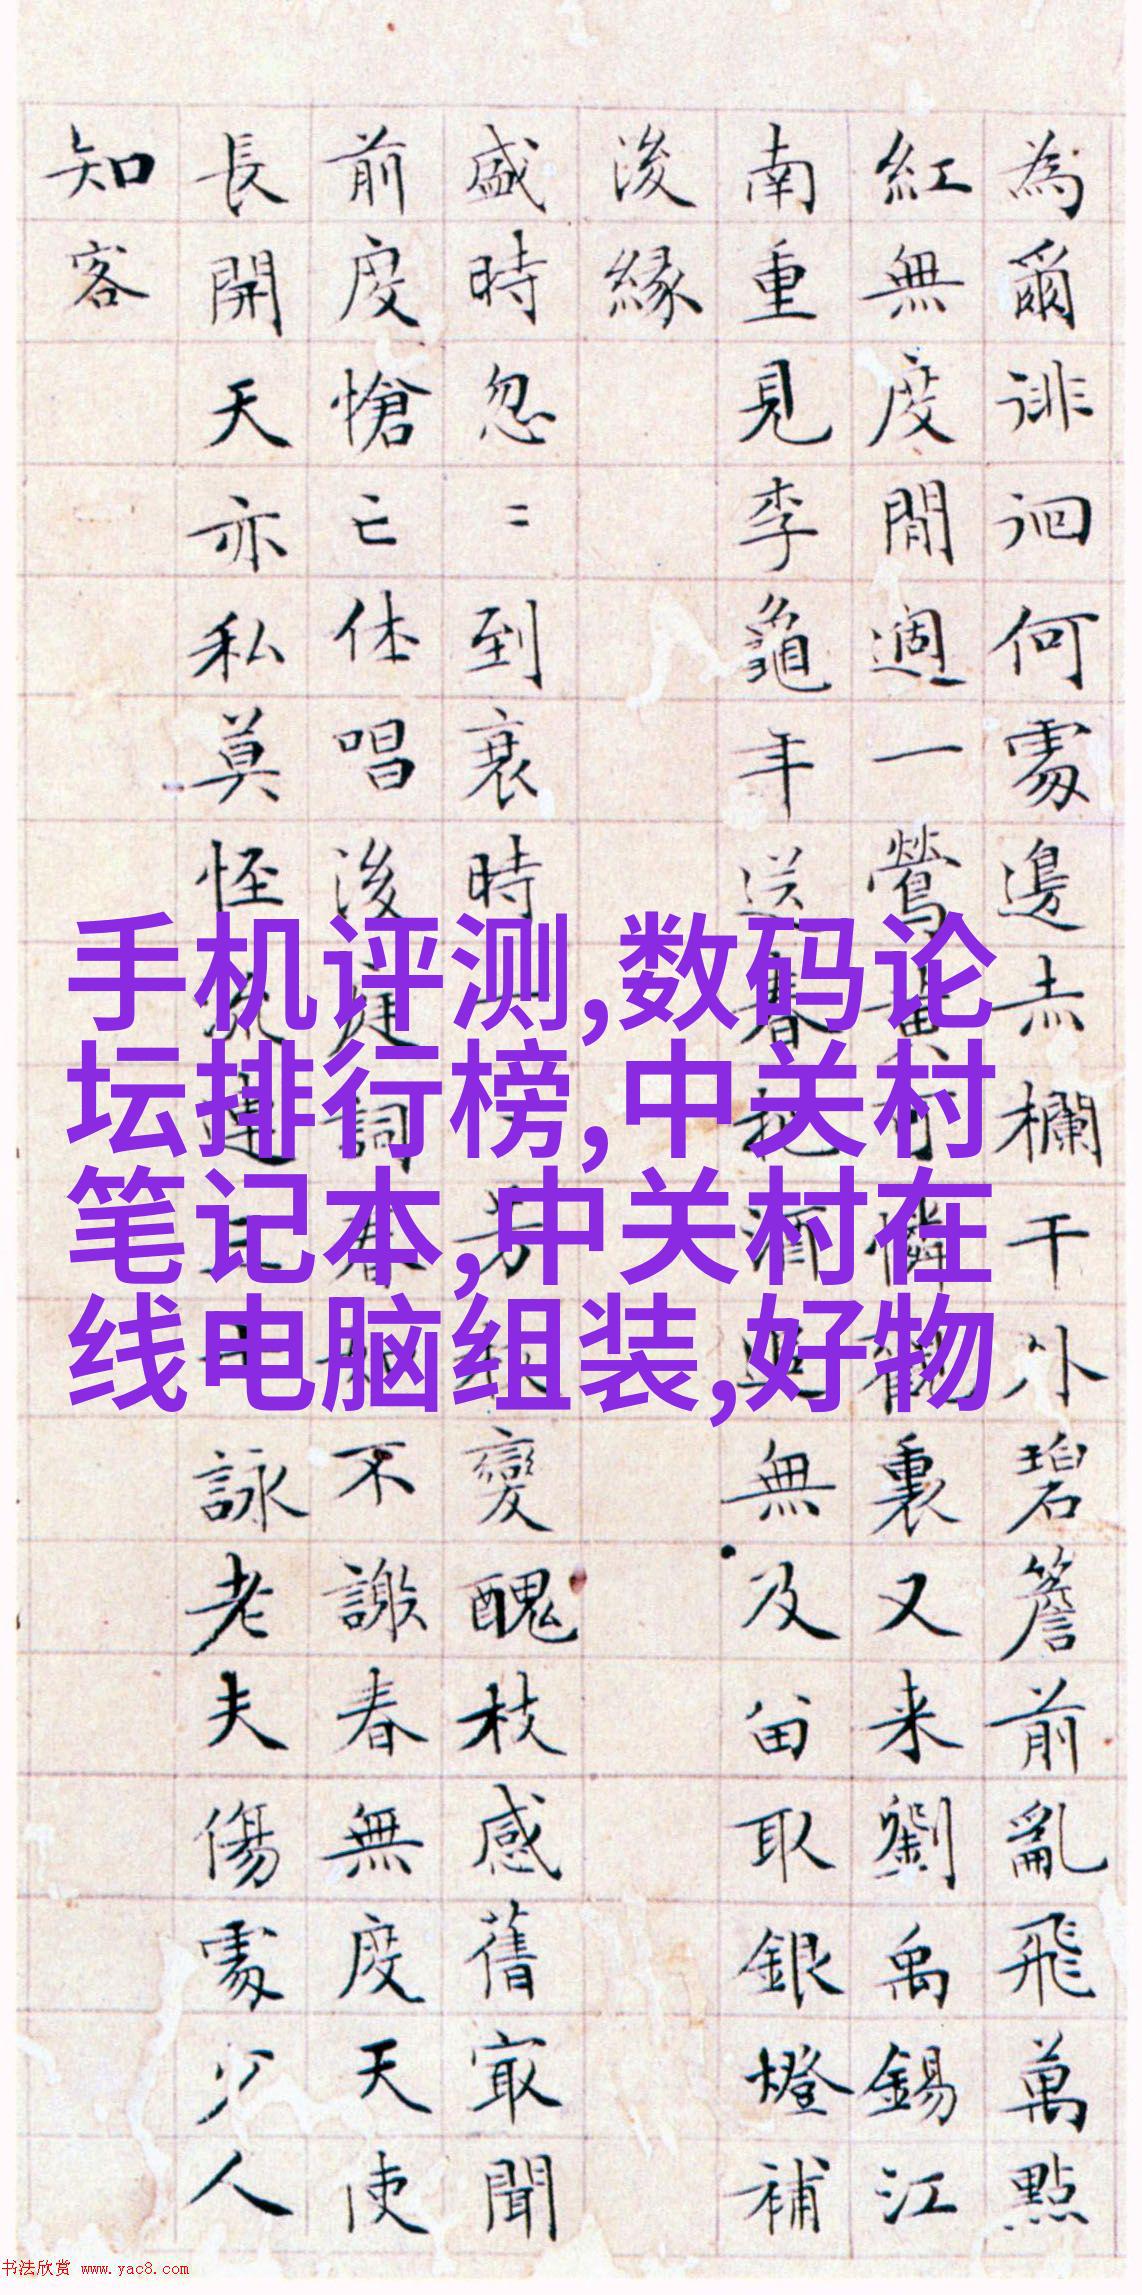 為爾徘徊何處邊赤欄干外碧簷前亂飛萬點
紅無度閒週一鶯黃可憐觀裏又来劉禹錫江
南重見李龜年送春把酒無及留取銀燈補
後緣
盛時忽〻到衰時芳變醜枝感舊最聞
前度愴亡休唱後庭詞春不謝春無度天使
長開天亦私莫怪連詠老夫傷處少人
知客
手机评测,数码论
坛排行榜,中关村
笔记本,中关村在
线电脑组装,好物
书法欣赏 www.yac8.com